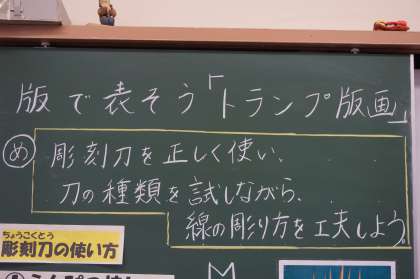 版で表そう「トランプ版画」
め 彫刻刀を正しく使い、
刀の種類を試しながら、
線の彫り方を工夫しよう。
ちょうこくとう
彫刻刀の使い方